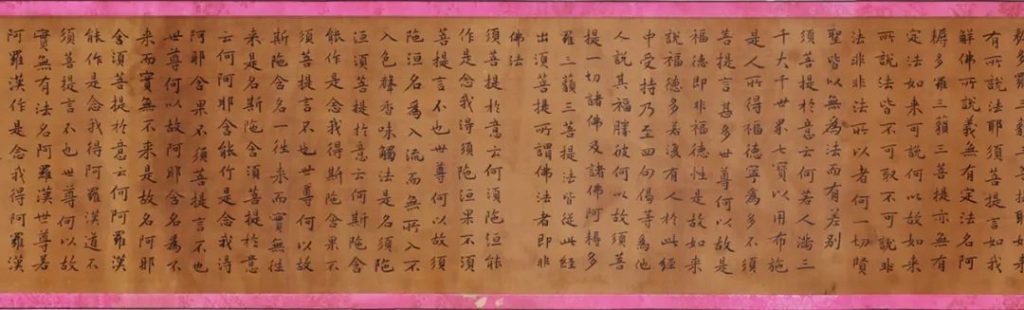 耨多羅三藐三菩提耶如來
有所說法耶須菩提言如我
解佛所說義無有定法名阿
耨多羅三藐三菩提亦無有
定法如來可說何以故如來
所說法皆不可取不可說非
法非非法所以者何一切賢
聖皆以無為法而有差別
須菩提於意云何若人滿三
千大千世界七寶以用布施
是人所得福德寧為多不須
菩提言甚多世尊何以故是
福德即非福德性是故如來
說福德多若復有人於此經
中受持乃至四句偈等為他
人說其福勝彼何以故須菩
提一切諸佛及諸佛阿耨多
羅三藐三菩提法皆從此經
出須菩提所謂佛法者即非
佛法
須菩提於意云何須陀洹能
作是念我得須陀洹果不須
菩提言不也世尊何以故須
陀洹名為入流而無所入不
入色聲香味觸法是名須陀
洹須菩提於意云何斯陀含
能作是念我得斯陀含果不
須菩提言不也世尊何以故
斯陀含名一往來而實無往
來是名斯陀含須菩提於意
云何阿那含能作是念我得
阿那含果不須菩提言不也
世尊何以故阿那含名為不
來而實無不來是故名阿那
含須菩提於意云何阿羅漢
能作是念我得阿羅漢道不
須菩提言不也世尊何以故
實無有法名阿羅漢世尊若
阿羅漢作是念我得阿羅漢